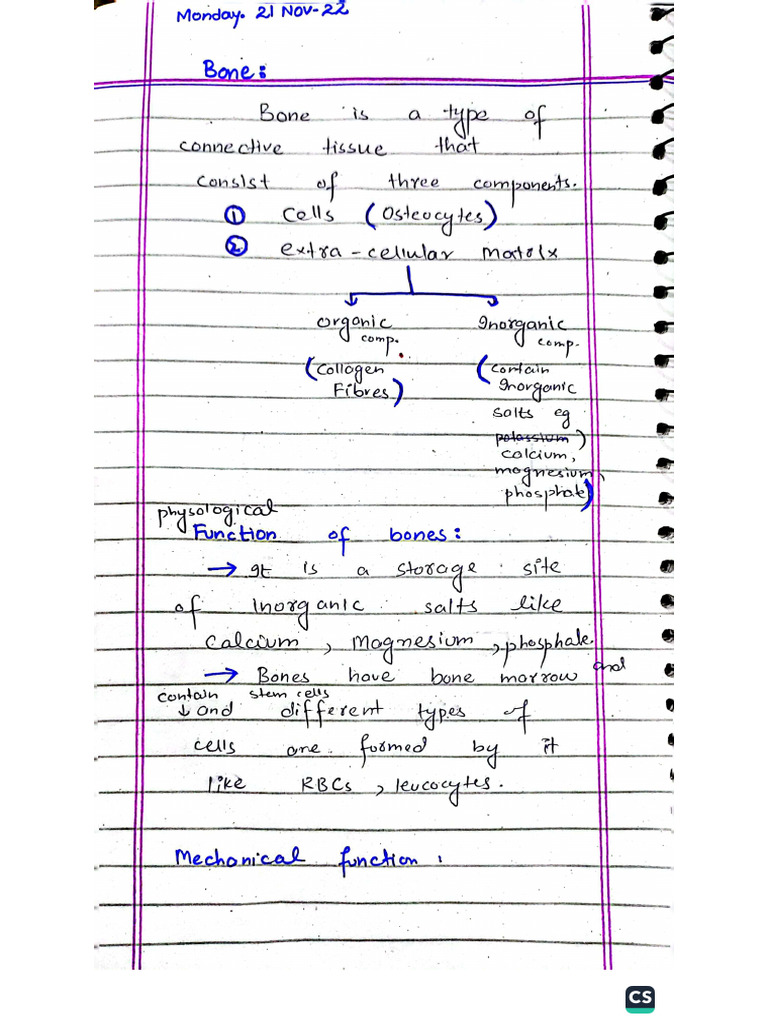 Monday. 21 Nov-22
Bone:
Bone is a type of
connective tissue that
consist of three components.
① Cells (Osteocytes)
② extra-cellular matrix
organic comp. Inorganic comp.
(Collogen Fibres) (contain Inorganic
salts eg
potassium)
calcium,
magnesium,
phosphate)
physological
Function of bones:
→ It is a storage site
of inorganic salts like
Calcium, Magnesium, phosphate.
→ Bones have bone marrow and
contain stem cells
↓ and different types of
cells are formed by it
like RBCs, leucocytes.
Mechanical function:
CS